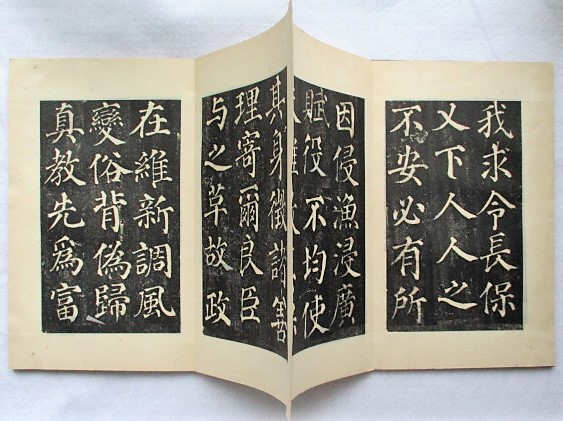 我求令長保
乂下人人之
不安必有所
因侵漁浸廣
賦役不均使
其身徵諸善
理寄爾良臣
与之革故政
在維新調風
變俗背偽歸
真教先爲富